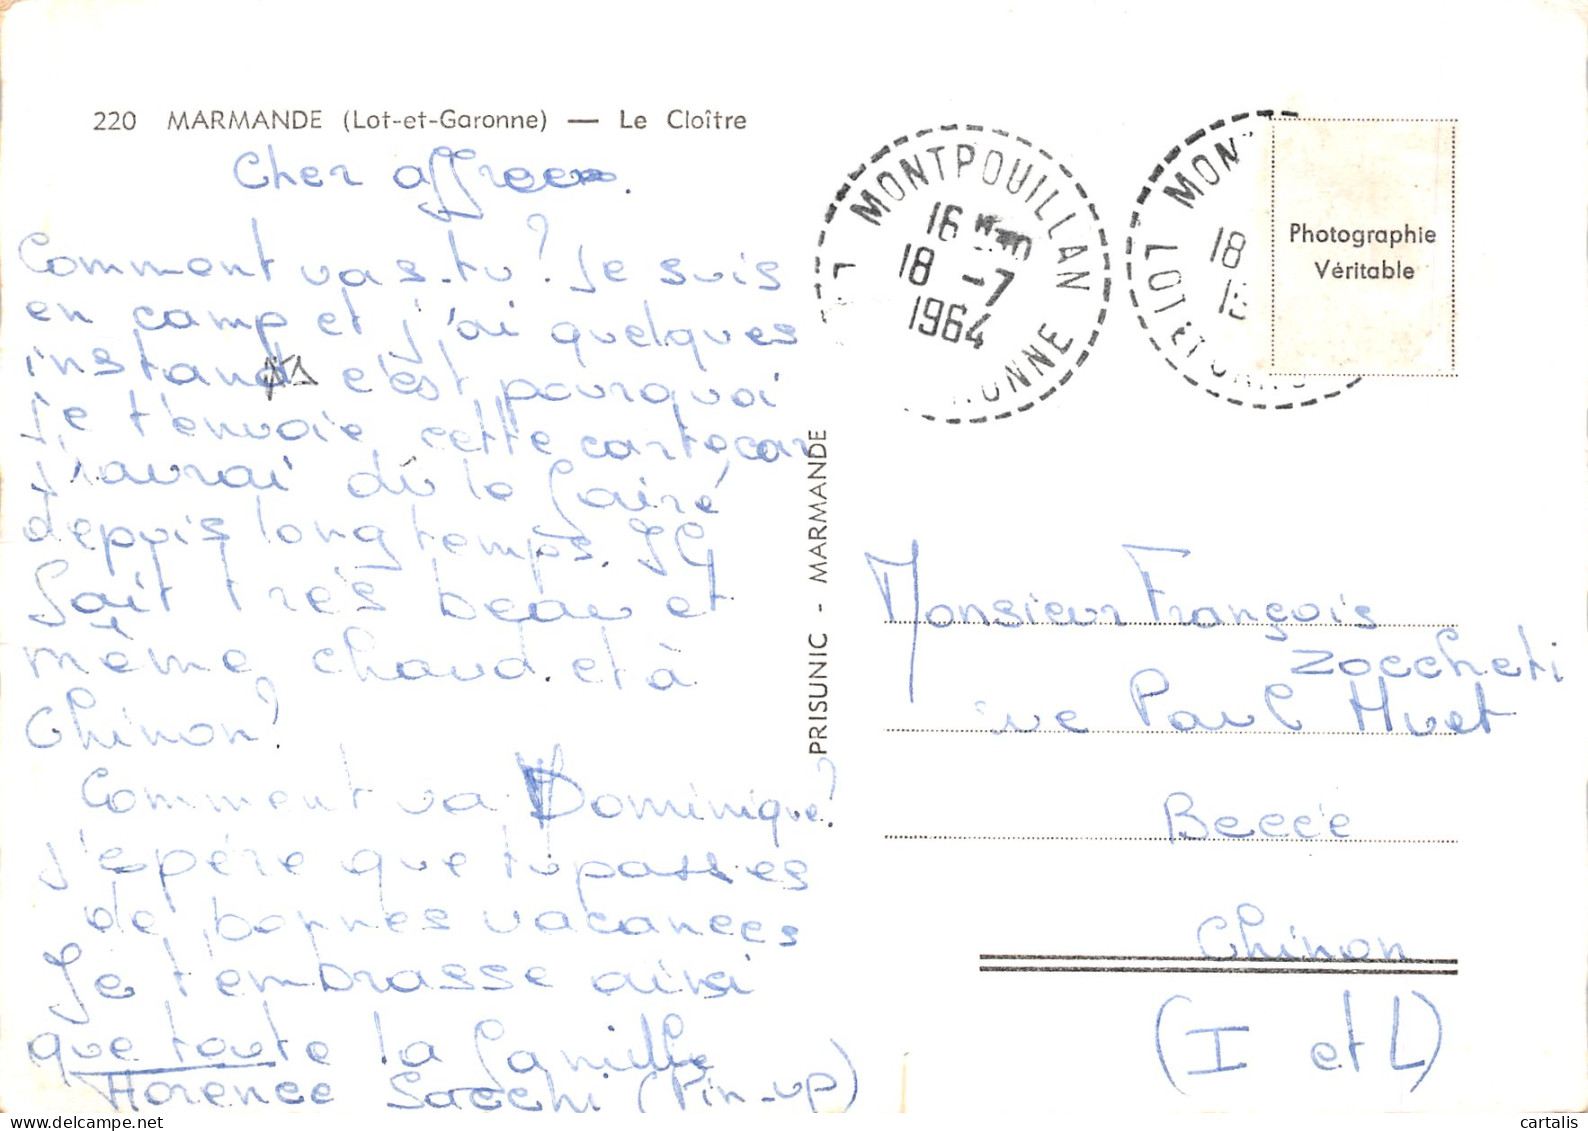 220 MARMANDE (Lot-et-Garonne) — Le Cloître
Cher affreux.
Comment vas-tu? Je suis
en camp et j'ai quelques
instants c'est pourquoi
je t'envoie cette carte car
j'aurai dû le fairé
depuis longtemps. Il
fait très beau et
même chaud. et à
Chinon?
Comment va Dominique?
j'espére que tu passes
de bonnes vacances
Je t'embrasse ainsi
que toute la famille
Florence Sacchi (Pin-up)
PRISUNIC - MARMANDE
MONTPOUILLAN
16
18 -7
1964
L
RONNE
MON
LOT ET GARO
18
Photographie
Véritable
Monsieur François
Zoccheti
rue Paul Huet
Beccé
Chinon
(I et L)
cartalis
delcampe.net